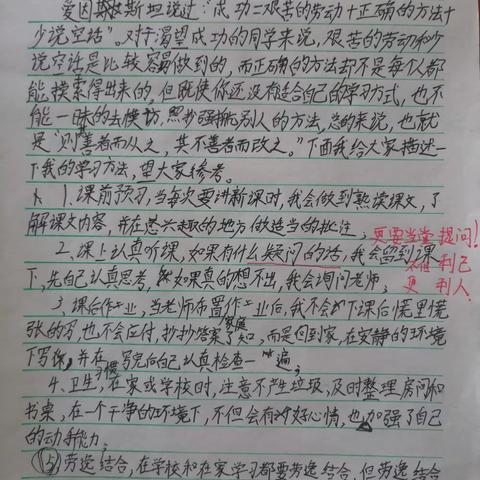 爱因斯坦斯坦说过:“成功二艰苦的劳动十正确的方法十
少说空话”。对于渴望成功的同学来说，艰苦的劳动和少
说空话是比较容易做到的，而正确的方法却不是每个人都
能摸索得出来的，但既使你还没有适合自己的学习方式，也不
能一味的去模仿，照抄强搬别人的方法，总的来说，也就
是“则善者而从之，其不善者而改之。”下面我给大家描述一
下我的学习方法，望大家参考。
1.课前预习，当每次要讲新课时，我会做到熟读课文，了
解课文内容，并在感兴趣的地方做适当的批注，更要当堂提问!
2.课上认真听课，如果有什么疑问的话，我会留到课
下，先自己认真思考，如果真的想不出，我会询问老师，
不但利己
更利人。
3.课后作业，当老师布置作业后，我不会下课后慌里慌
张的写，也不会应付，抄抄答案了知，而是回到家，在安静的环境
下写，并在写完后自己认真检查一遍，
4.卫生，在家或学校时，注意不产生垃圾，及时整理房间和
书桌，在一个干净的环境下，不但会有好心情，也加强了自己
的动手能力，
⑤劳逸结合，在学校和在家学习都要劳逸结合，但劳逸结合